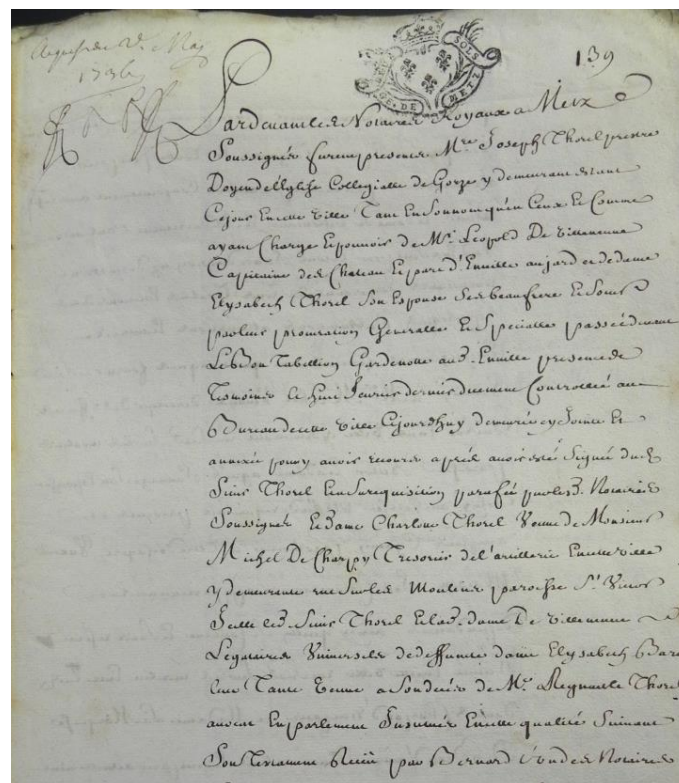 de May
1736
139
SOLS
GE. DE METZ
Pardevant les Notaires Royaux a Metz
Soussignés furent presens Mre. Joseph Thorel prestre
Doyen de l'Eglise Collegialle de Gorze y demeurant estant
Cejour En cette Ville Tant En Son nom qu'en Ceux Et Comme
ayant Charge Et pouvoir de Mr. Leopold De Villeneuve
Capitaine des Chateau Et parc d'Einville au jard et de dame
Elysabeth Thorel Son Espouse Ses beaufrere Et Soeur
par leur procuration Generalle Et Specialle passée devant
Le Bon Tabellion Gardenotte aud. Einville presence de
Temoins le huit Fevrier dernier duement Controllée au
Bureau de cette Ville Cejourdhuy demeurée cy Jointe Et
annexée pour y avoir recours aprés avoir esté Signée dud.
Sieur Thorel Et a Sa requisition parafée par lesd. Notaires
Soussignés Et dame Charlotte Thorel Veuve de Monsieur
Michel De Charpy Tresorier de l'artillerie En cette ville
y demeurante rue Sur les Moulins paroisse St. Victor
Iceux led. Sieur Thorel Et lad. dame De Villeneuve
Legataires Universels de deffunte dame Elysabeth
leur Tante Veuve de Me. Regnault Thorel
avocat En parlement En cette qualité Suivant
Son Testament Receu par Bernard Notaires